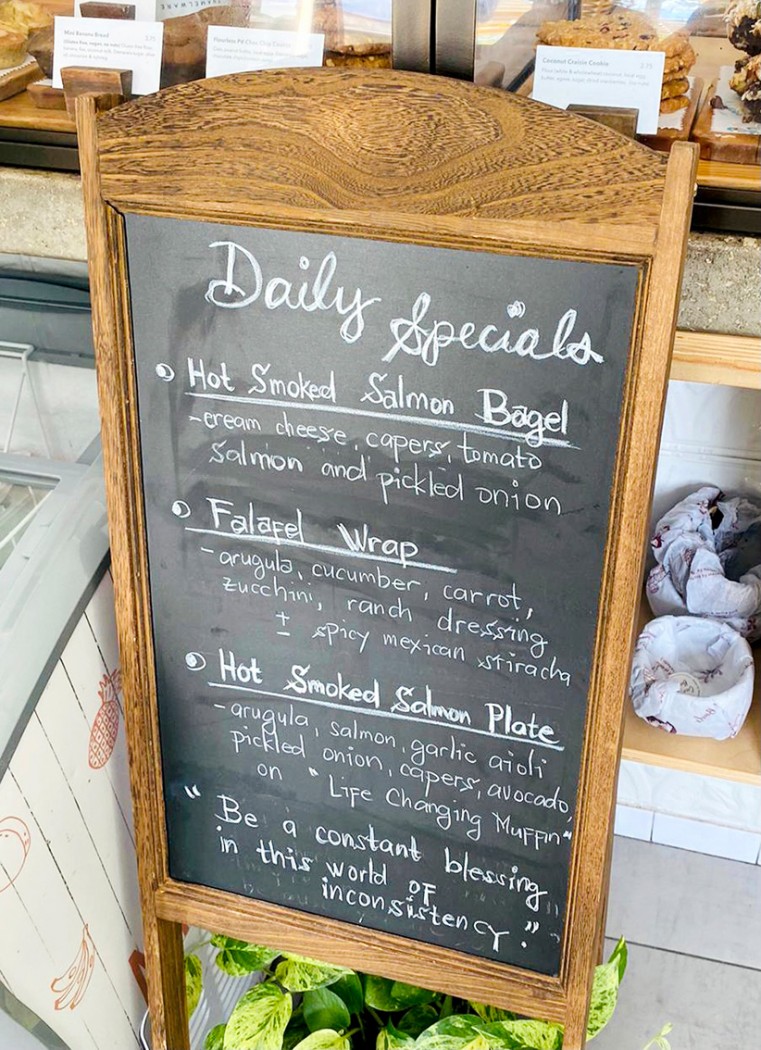 Mini Banana Bread
Coconut Craisin Cookie 3.75
Daily Specials
Hot Smoked Salmon Bagel
- cream cheese, capers, tomato
salmon and pickled onion
Falafel Wrap
- arugula, cucumber, carrot,
zucchini, ranch dressing
± spicy mexican sriracha
Hot Smoked Salmon Plate
- arugula, salmon, garlic aioli
pickled onion, capers, avocado,
on "Life Changing Muffin"
"Be a constant blessing
in this world of
inconsistency."